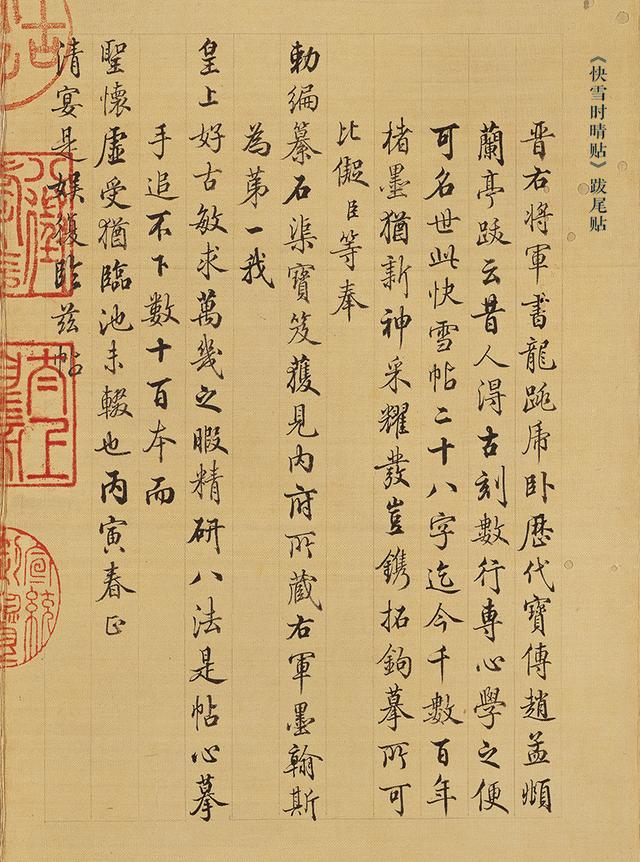 《快雪时晴贴》跋尾贴
晋右将軍書龍跳虎卧歷代寶傳趙孟頫
蘭亭跋云昔人得古刻數行專心學之便
可名世此快雪帖二十八字迄今千數百年
楮墨猶新神采耀發豈鐫拓鉤摹所可
比儗臣等奉
勅編纂石渠寶笈獲見内府所蔵右軍墨翰斯
為第一我
皇上好古敏求萬幾之暇精研八法是帖心摹
手追不下數十百本而
聖懷虛受猶臨池未輟也丙寅春正
清宴是娱復臨兹帖